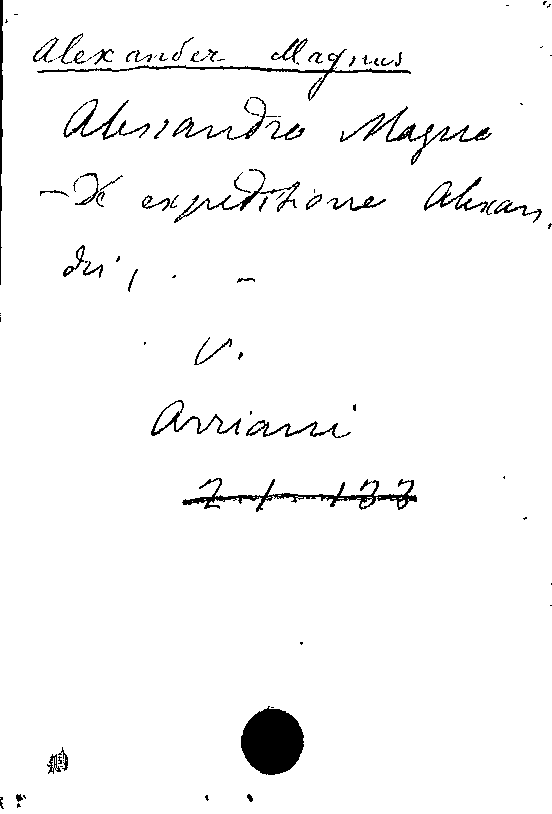 Alexander Magnus
Alessandro Magno
- De expeditione Alexan,
dri, . -
V.
Arriani
2. 1. 133